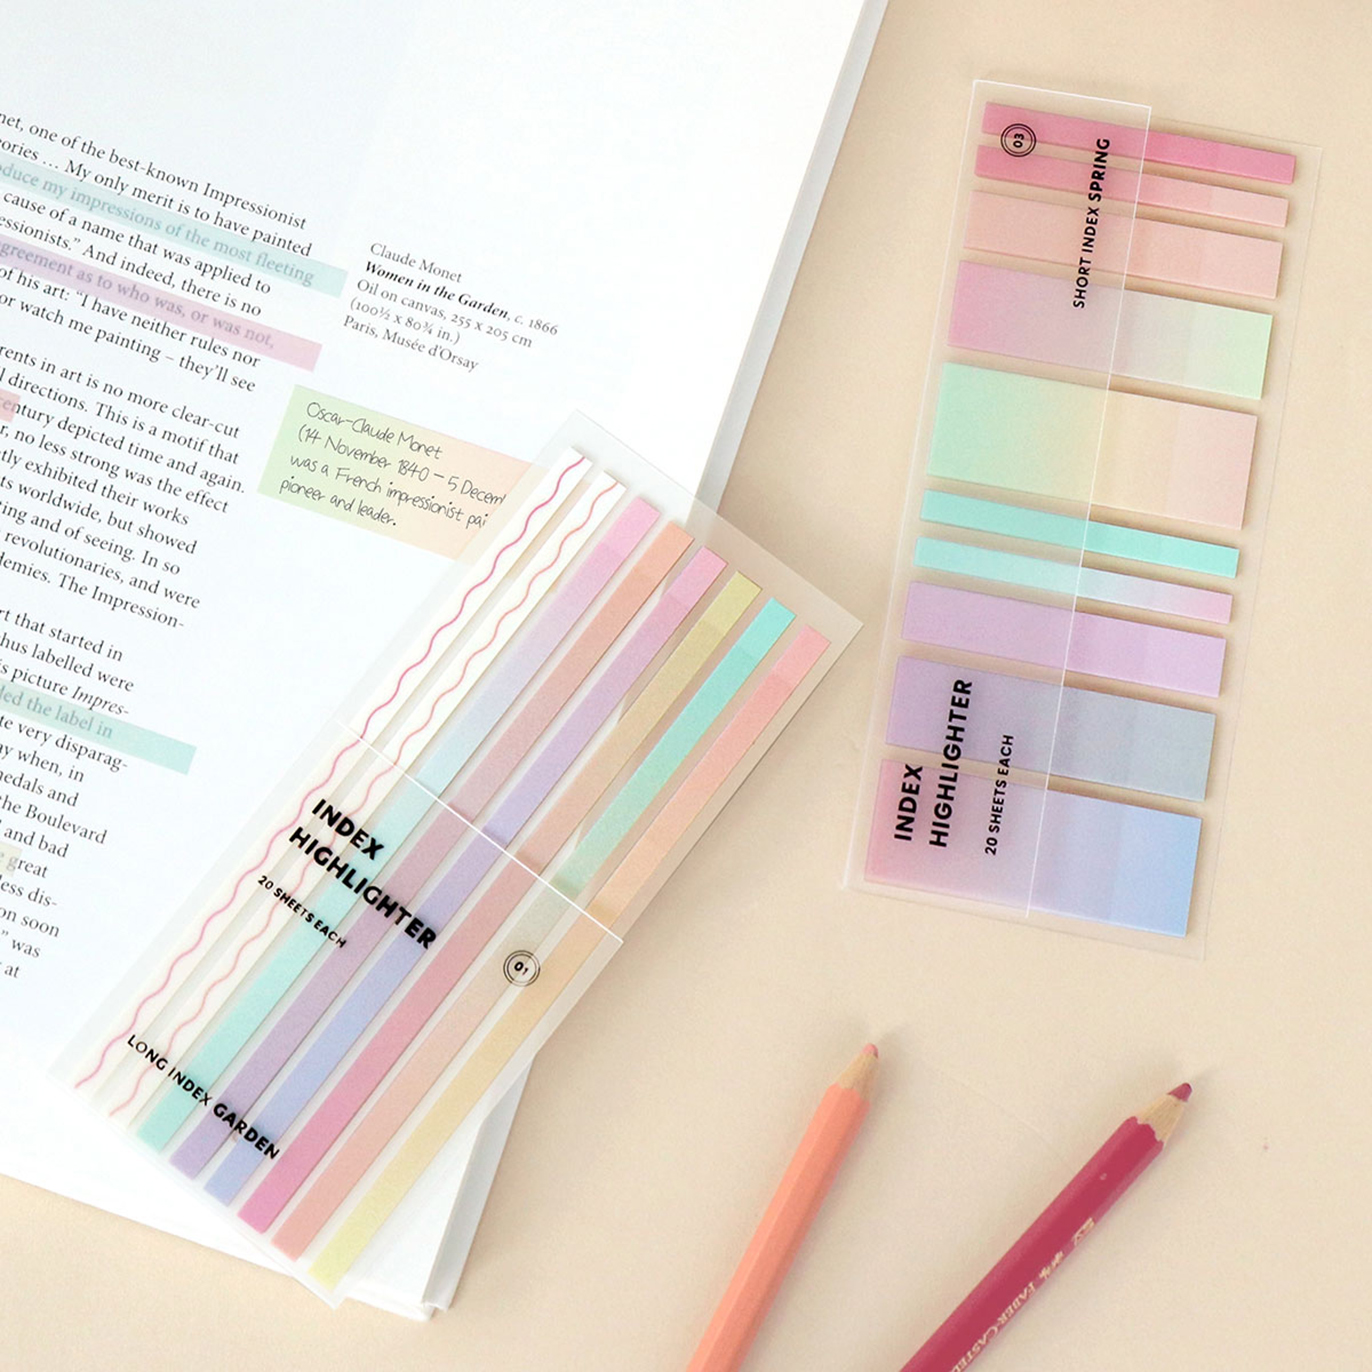 net, one of the best-known Impressionist
ories … My only merit is to have painted
oduce my impressions of the most fleeting
cause of a name that was applied to
essionists.” And indeed, there is no
greement as to who was, or was not,
of his art: “I have neither rules nor
or watch me painting – they’ll see
rents in art is no more clear-cut
l directions. This is a motif that
century depicted time and again.
r, no less strong was the effect
tly exhibited their works
ts worldwide, but showed
ing and of seeing. In so
revolutionaries, and were
demies. The Impression-
rt that started in
thus labelled were
s picture Impres-
led the label in
te very disparag-
ay when, in
medals and
the Boulevard
and bad
great
less dis-
on soon
” was
at
Claude Monet
Women in the Garden, c. 1866
Oil on canvas, 255 x 205 cm
(100½ x 80¾ in.)
Paris, Musée d’Orsay
Oscar-Claude Monet
(14 November 1840 – 5 Decem
was a French impressionist pai
pioneer and leader.
INDEX
HIGHLIGHTER
20 SHEETS EACH
01
LONG INDEX GARDEN
03
SHORT INDEX SPRING
INDEX
HIGHLIGHTER
20 SHEETS EACH
FABER-CASTELL